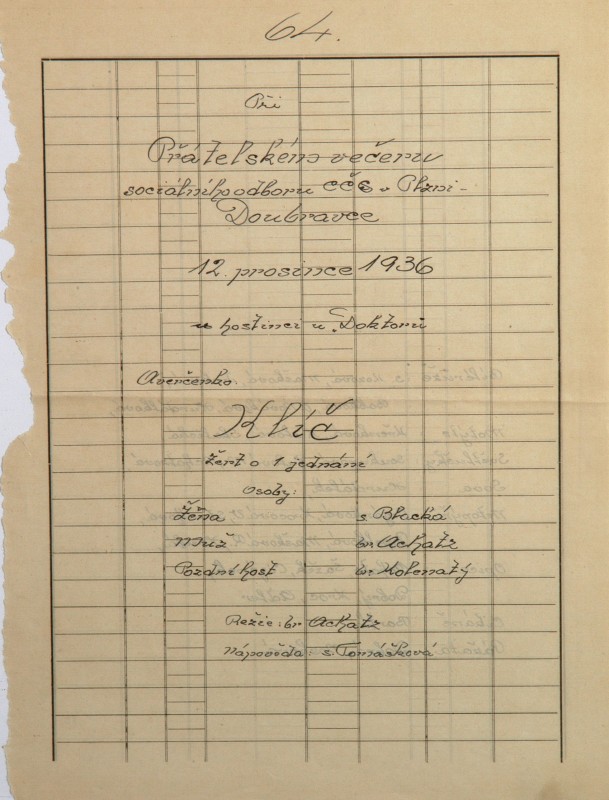 64.
Při
Přátelského večeru
sociálního odboru CČS v Plzni-
Doubravce
12. prosince 1936
v hostinci u "Doktorů
Averčenko
Klíč
žert o 1 jednání
Osoby:
Žena s. Blacká
Muž br. Achatz
Pozdní host br. Molenatý
Režie: br Achatz
Nápověda: s. Tomášková